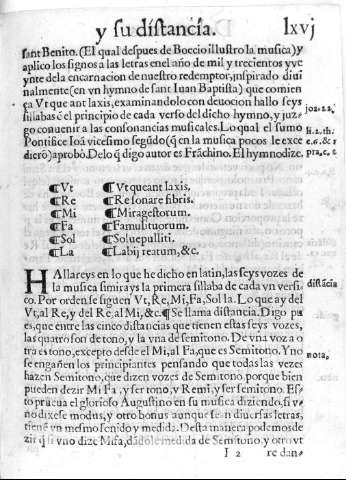 y su distancia. lxvj
sant Benito. (El qual despues de Boecio illustro la musica) y
aplico los signos a las letras en el año de mil y trecientos y ve
ynte de la encarnacion de nuestro redemptor, inspirado diui
nalmente (en vn hymno de sant Iuan Baptista) que comien
ça Vt queant laxis, examinandolo con deuocion hallo seys
syllabas é el principio de cada verso del dicho hymno, y juz-
go conuenir a las consonancias musicales. Lo qual el sumo
Pontifice Ioã vicesimo segũdo (q̃ en la musica pocos le exce
dierõ) aprobò. De lo q̃ digo autor es Frãchino. El hymno dize.
¶Vt ¶Vt queant laxis.
¶Re ¶Resonare fibris.
¶Mi ¶Mira gestorum.
¶Fa ¶Famuli tuorum.
¶Sol ¶Solue pulliti.
¶La ¶Labij reatum, &c.
HAllareys en lo que he dicho en latin, las seys vozes de
la musica si mirays la primera sillaba de cada vn versi
co. Por orden se siguen Vt, Re, Mi, Fa, Sol la. Lo que ay del
Vt, al Re, y del Re, al Mi, &c. ¶Se llama distancia. Digo pu
es, que entre las cinco distancias que tienen estas seys vozes,
las quatro son de tono, y la vna de semitono. De vna voz a o
tra es tono, excepto desde el Mi, al Fa, que es Semitono. Y no
se engañen los principiantes pensando que todas las vezes
hazen Semitono, que dizen vozes de Semitono. porque bien
pueden dezir Mi Fa, y ser tono, y Re mi, y ser semitono. Es-
to prueua el glorioso Augustino en su musica diziendo, si v-
no dixese modus, y otro bonus aunque sean diuersas letras,
tienẽ vn mesmo sonido y medida. Desta manera podemos de
zir q̃ si vno dize Mi fa, dãdole medida de Semitono, y otro vt
I 2 re dan-
distãcia
nota,